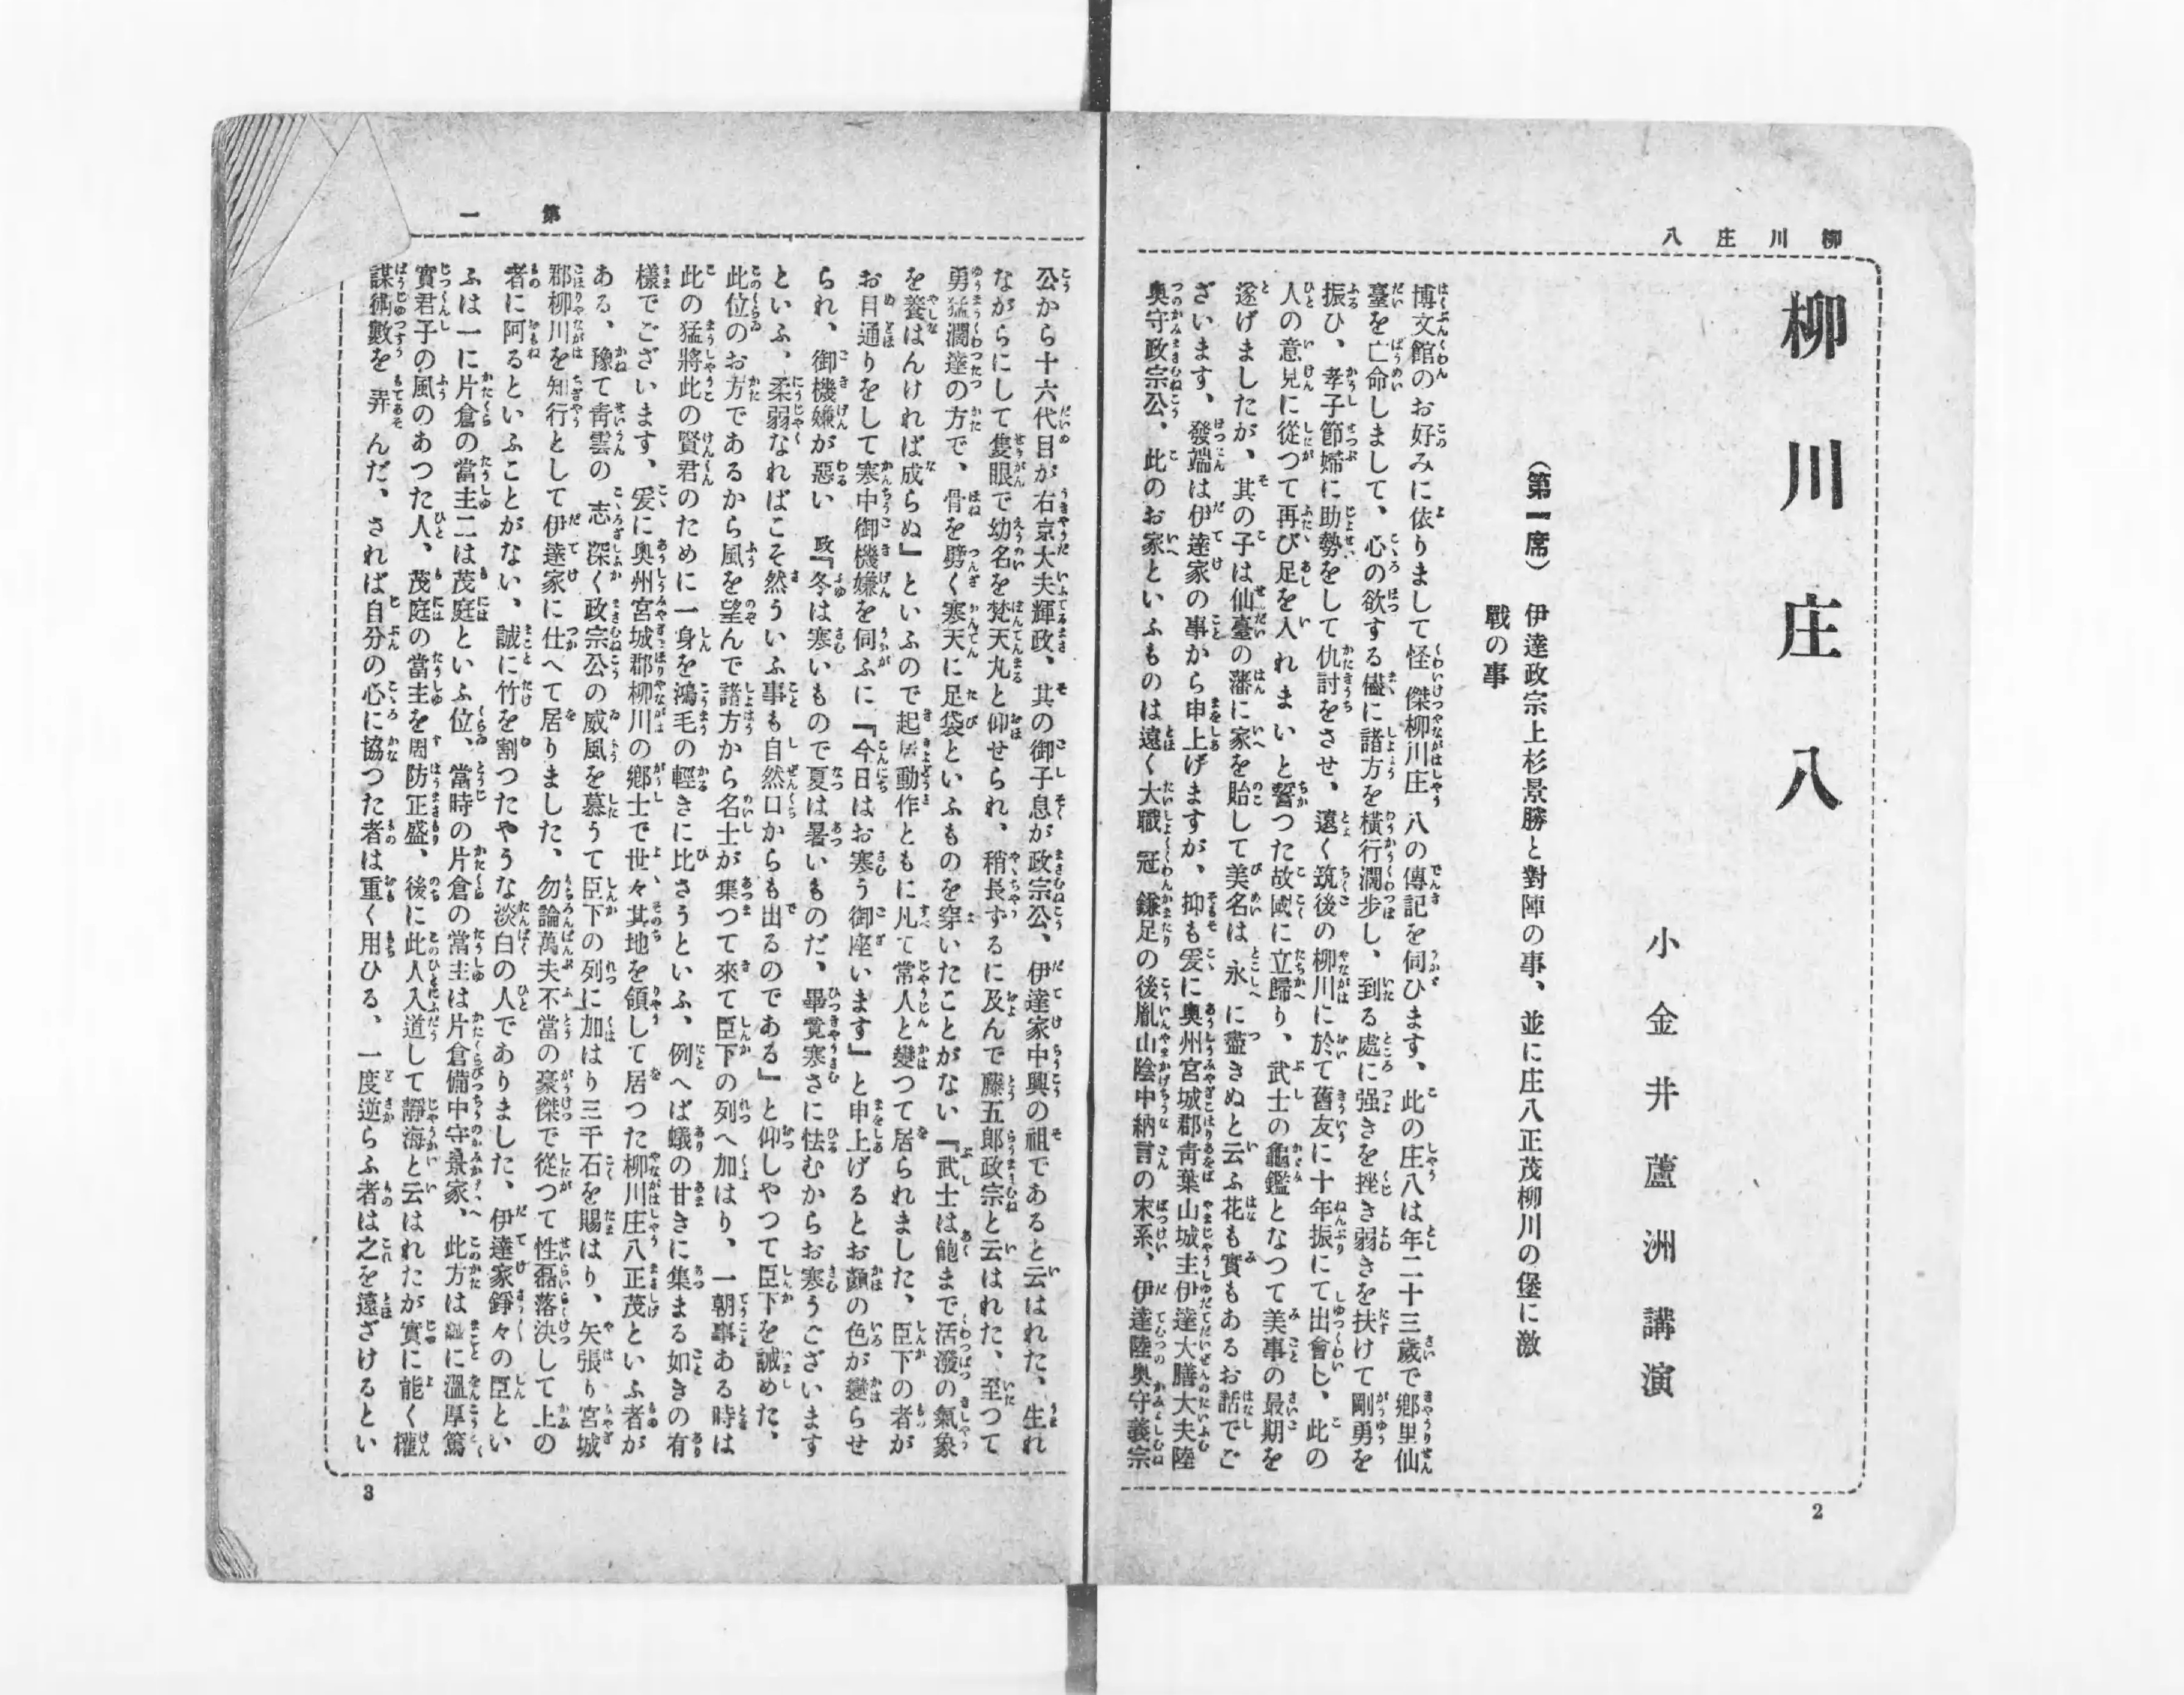 柳川庄八
柳川庄八
小金井蘆洲講演
(第一席) 伊達政宗上杉景勝と對陣の事、並に庄八正茂柳川の堡に激
戰の事
博文館のお好みに依りまして怪傑柳川庄八の傳記を伺ひます、此の庄八は年二十三歳で鄕里仙
臺を亡命しまして、心の欲する儘に諸方を橫行濶步し、到る處に强きを挫き弱きを扶けて剛勇を
振ひ、孝子節婦に助勢をして仇討をさせ、遠く筑後の柳川に於て舊友に十年振にて出會し、此の
人の意見に從つて再び足を入れまいと誓つた故國に立歸り、武士の龜鑑となつて美事の最期を
遂げましたが、其の子は仙臺の藩に家を貽して美名は永に盡きぬと云ふ花も實もあるお話でご
ざいます、發端は伊達家の事から申上げますが、抑も爰に奥州宮城郡靑葉山城主伊達大膳大夫陸
奥守政宗公、此のお家といふものは遠く大職冠鎌足の後胤山陰中納言の末系、伊達陸奥守義宗
2
第一
公から十六代目が右京大夫輝政、其の御子息が政宗公、伊達家中興の祖であると云はれた、生れ
ながらにして隻眼で幼名を梵天丸と仰せられ、稍長ずるに及んで藤五郎政宗と云はれた、至つて
勇猛濶達の方で、骨を劈く寒天に足袋といふものを穿いたことがない『武士は飽まで活潑の氣象
を養はんければ成らぬ』といふので起居動作ともに凡て常人と變つて居られました、臣下の者が
お目通りをして寒中御機嫌を伺ふに『今日はお寒う御座います』と申上げるとお顏の色が變らせ
られ、御機嫌が惡い 政『冬は寒いもので夏は暑いものだ、畢竟寒さに怯むからお寒うございます
といふ、柔弱なればこそ然ういふ事も自然口からも出るのである』と仰しやつて臣下を誡めた、
此位のお方であるから風を望んで諸方から名士が集つて來て臣下の列へ加はり、一朝事ある時は
此の猛將此の賢君のために一身を鴻毛の輕きに比さうといふ、例へば蟻の甘きに集まる如きの有
樣でございます、爰に奥州宮城郡柳川の鄕士で世々其地を領して居つた柳川庄八正茂といふ者が
ある、豫て靑雲の志深く政宗公の威風を慕うて臣下の列に加はり三千石を賜はり、矢張り宮城
郡柳川を知行として伊達家に仕へて居りました、勿論萬夫不當の豪傑で從つて性磊落決して上の
者に阿るといふことがない、誠に竹を割つたやうな淡白の人でありました、伊達家錚々の臣とい
ふは一に片倉の當主二は茂庭といふ位、當時の片倉の當主は片倉備中守景家、此方は誠に溫厚篤
實君子の風のあつた人、茂庭の當主を周防正盛、後に此人入道して靜海と云はれたが實に能く權
謀術數を弄んだ、されば自分の心に協つた者は重く用ひる、一度逆らふ者は之を遠ざけるとい
3